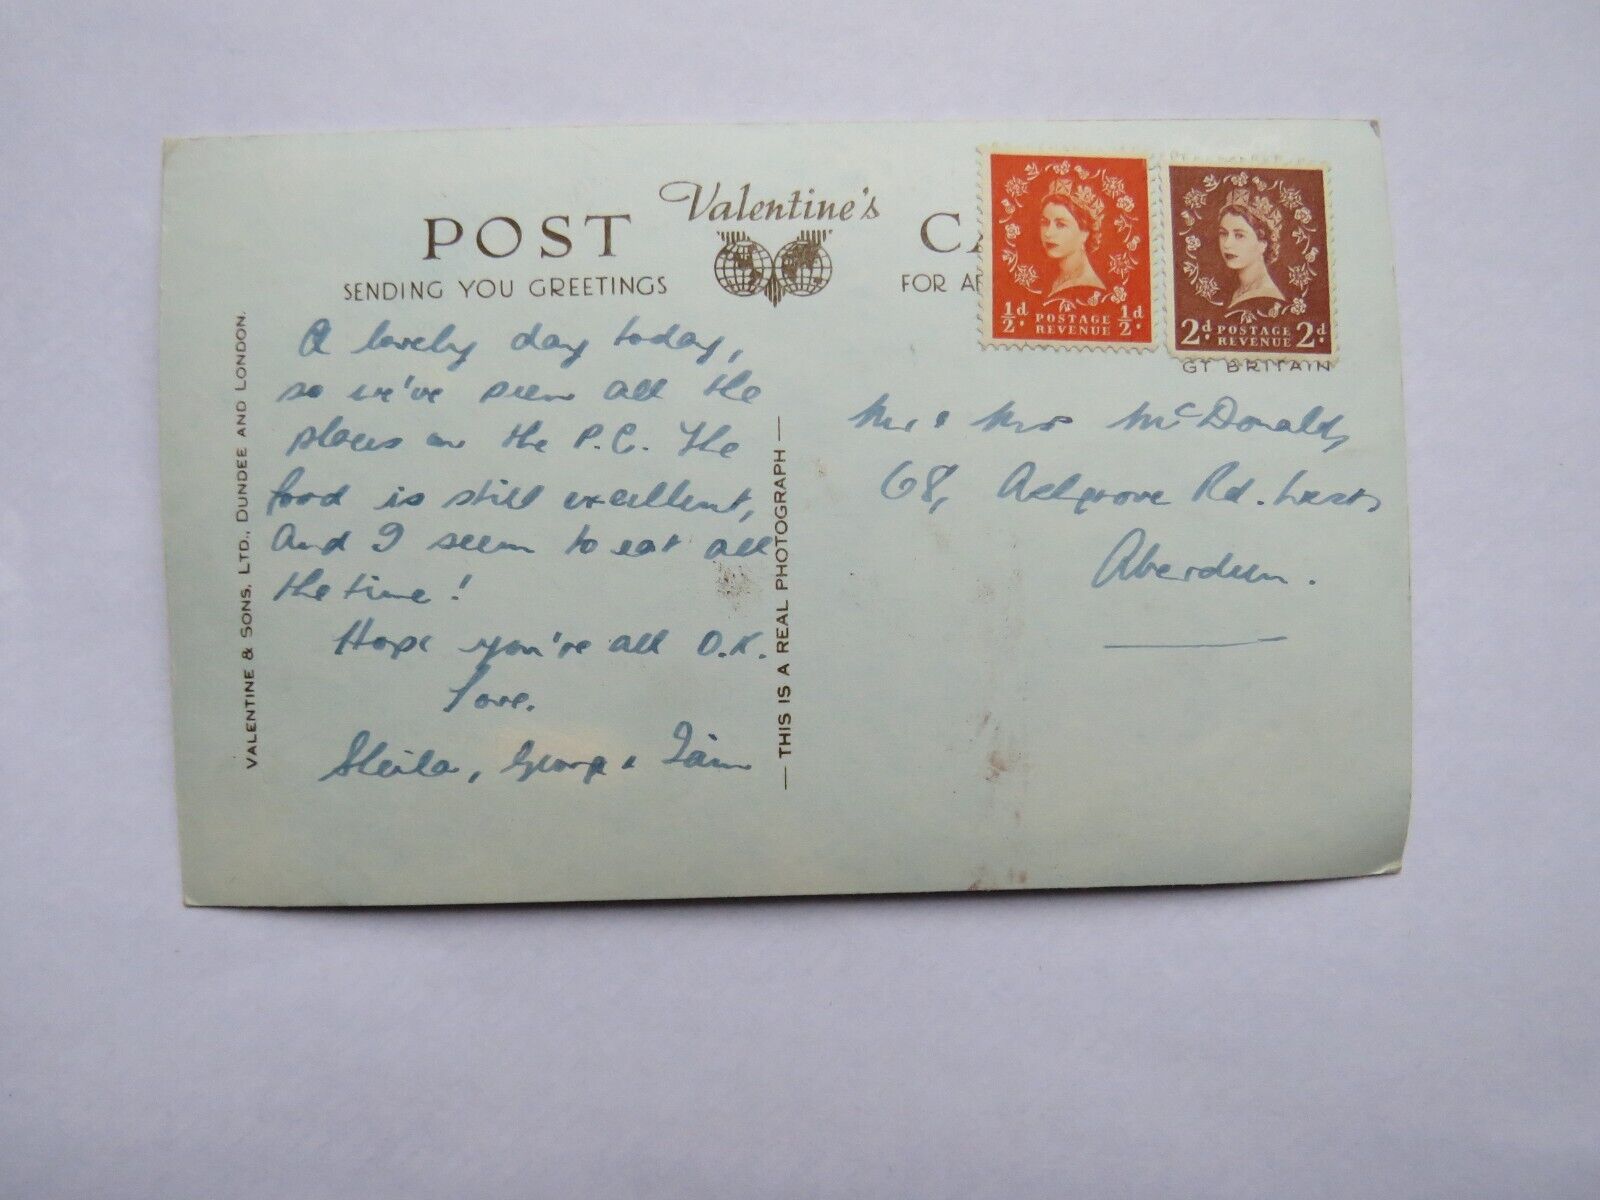 POST Valentine's CA
SENDING YOU GREETINGS FOR
½d. POSTAGE REVENUE ½d.
2d. POSTAGE REVENUE 2d.
GT BRITAIN
A lovely day today,
so we've seen all the
places on the P.C. The
food is still excellent,
And I seem to eat all
the time!
Hope you're all O.K.
Love.
Sheila, George & Iain
Mr & Mrs McDonald,
68, Rd. West,
Aberdeen.
THIS IS A REAL PHOTOGRAPH
VALENTINE & SONS, LTD., DUNDEE AND LONDON.